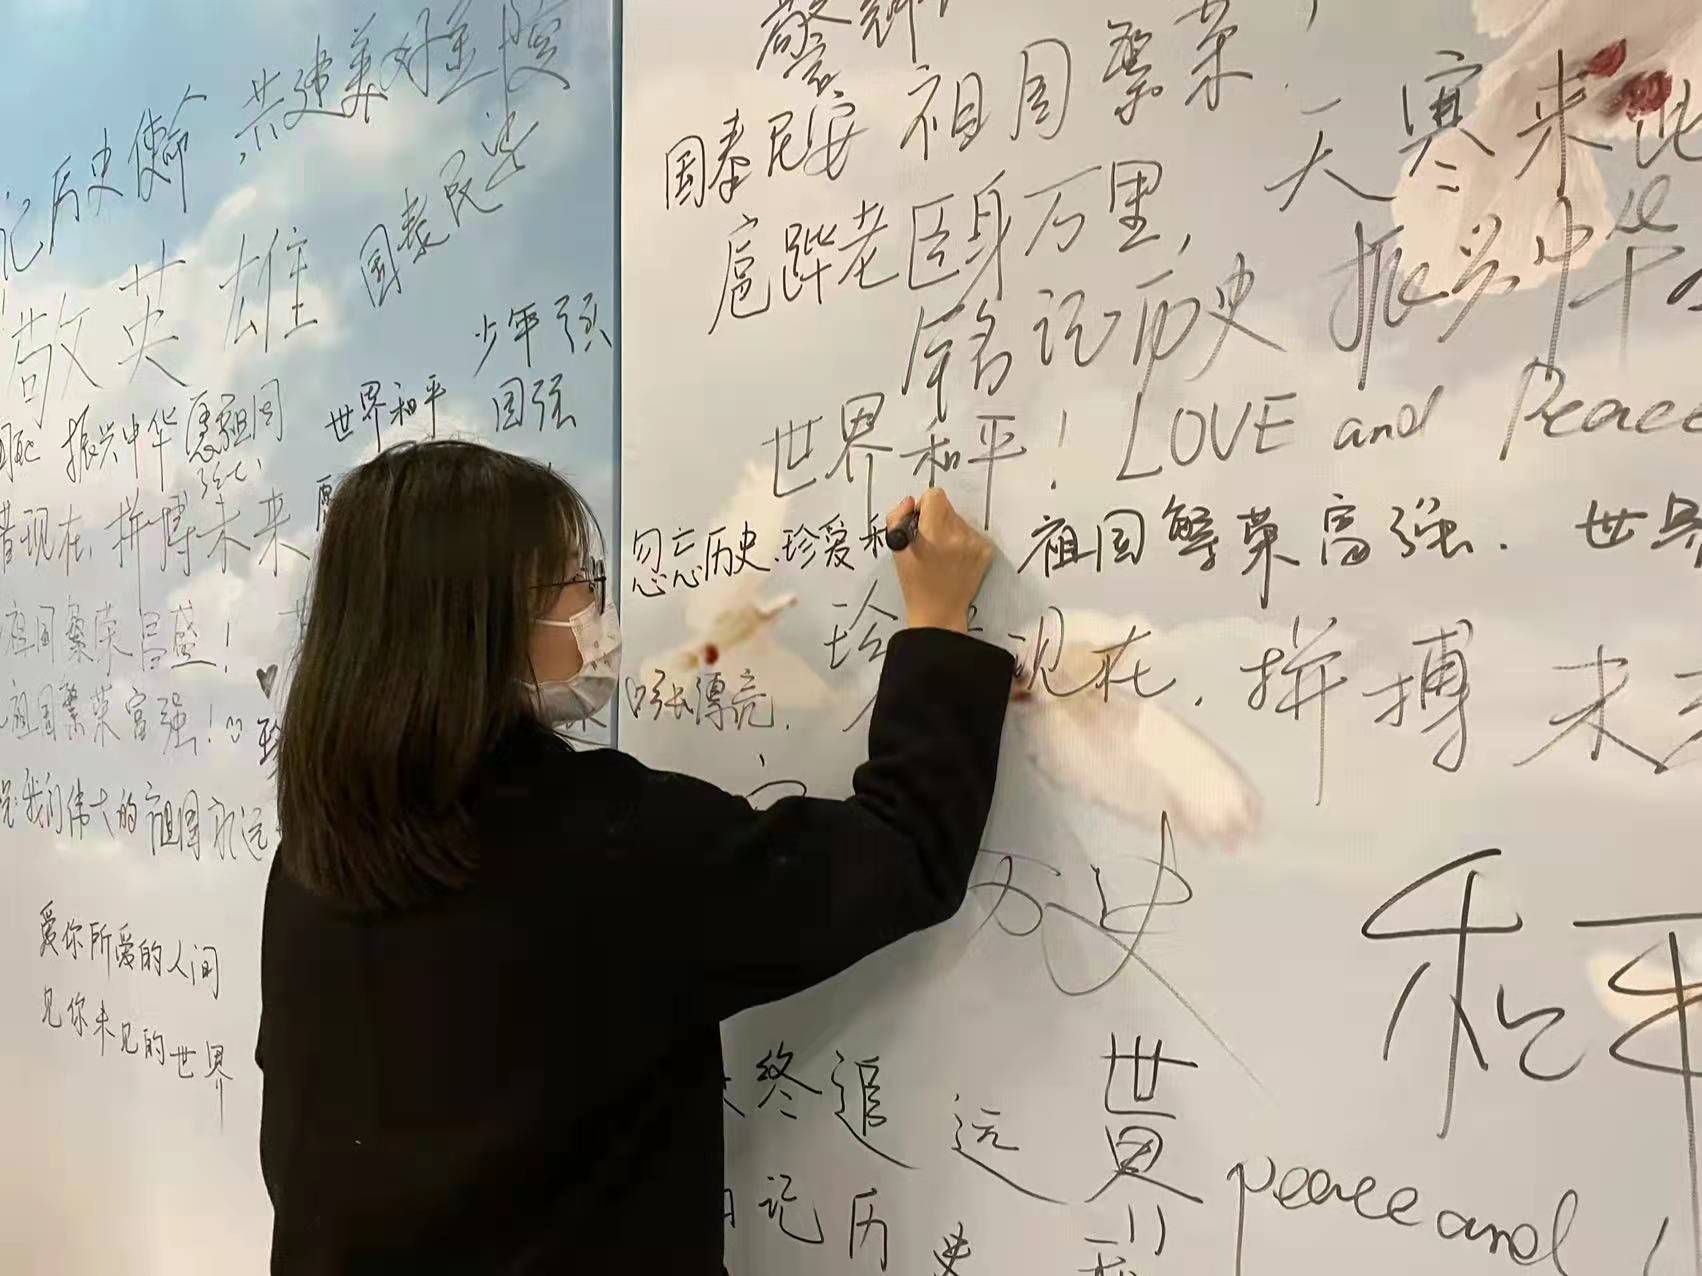 记历史使命 共建美好
敬英雄
国泰民安
少年强
国强
世界和平
振兴中华 愿祖国
强大
惜现在,拼搏未来
祖国繁荣昌盛!
祖国繁荣富强!
我们伟大的祖国永远
爱你所爱的人间
见你未见的世界
国泰民安 祖国繁荣
老区身万里,
天寒来此
铭记历史 振兴中华
世界和平! LOVE and Peace
忽忘历史,珍爱和
祖国繁荣富强. 世界
珍 现在,拼搏未来
张漂亮.
历史
和平
终追远
世界
记历史
peace and